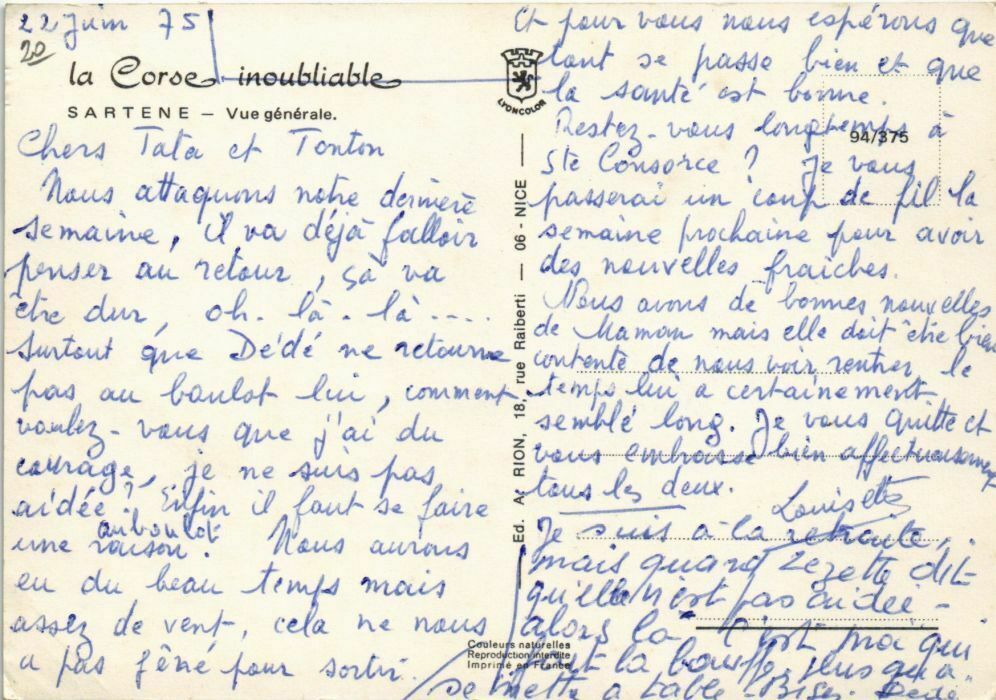 22 Juin 75
20
la Corse inoubliable
SARTENE — Vue générale.
Chers Tata et Tonton
Nous attaquons notre dernière
semaine, il va déjà falloir
penser au retour, ça va
être dur, oh. là. là....
surtout que Dédé ne retourne
pas au boulot lui, comment
voulez-vous que j'ai du
courage, je ne suis pas
aidée ? Enfin il faut se faire
au boulot
une raison ! Nous aurons
eu du beau temps mais
assez de vent, cela ne nous
a pas gêné pour sortir.
LYONCOLOR
Ed. A. RION, 18, rue Raiberti — 06 - NICE —
Couleurs naturelles
Reproduction interdite
Imprimé en France
94/375
Et pour vous nous espérons que
tout se passe bien et que
la santé est bonne.
Restez-vous longtemps à
Ste Consorce ? Je vous
passerai un coup de fil la
semaine prochaine pour avoir
des nouvelles fraîches.
Nous avons de bonnes nouvelles
de Maman mais elle doit être bien
contente de nous voir rentrer, le
temps lui a certainement
semblé long. Je vous quitte et
vous embrasse bien affectueusement
tous les deux.
Louisette
Je suis à la retraite,
mais quand Zezette dit
qu'elle n'est pas aidée -
alors là c'est moi qui
fait la bouffe,
se mette à table. Bises